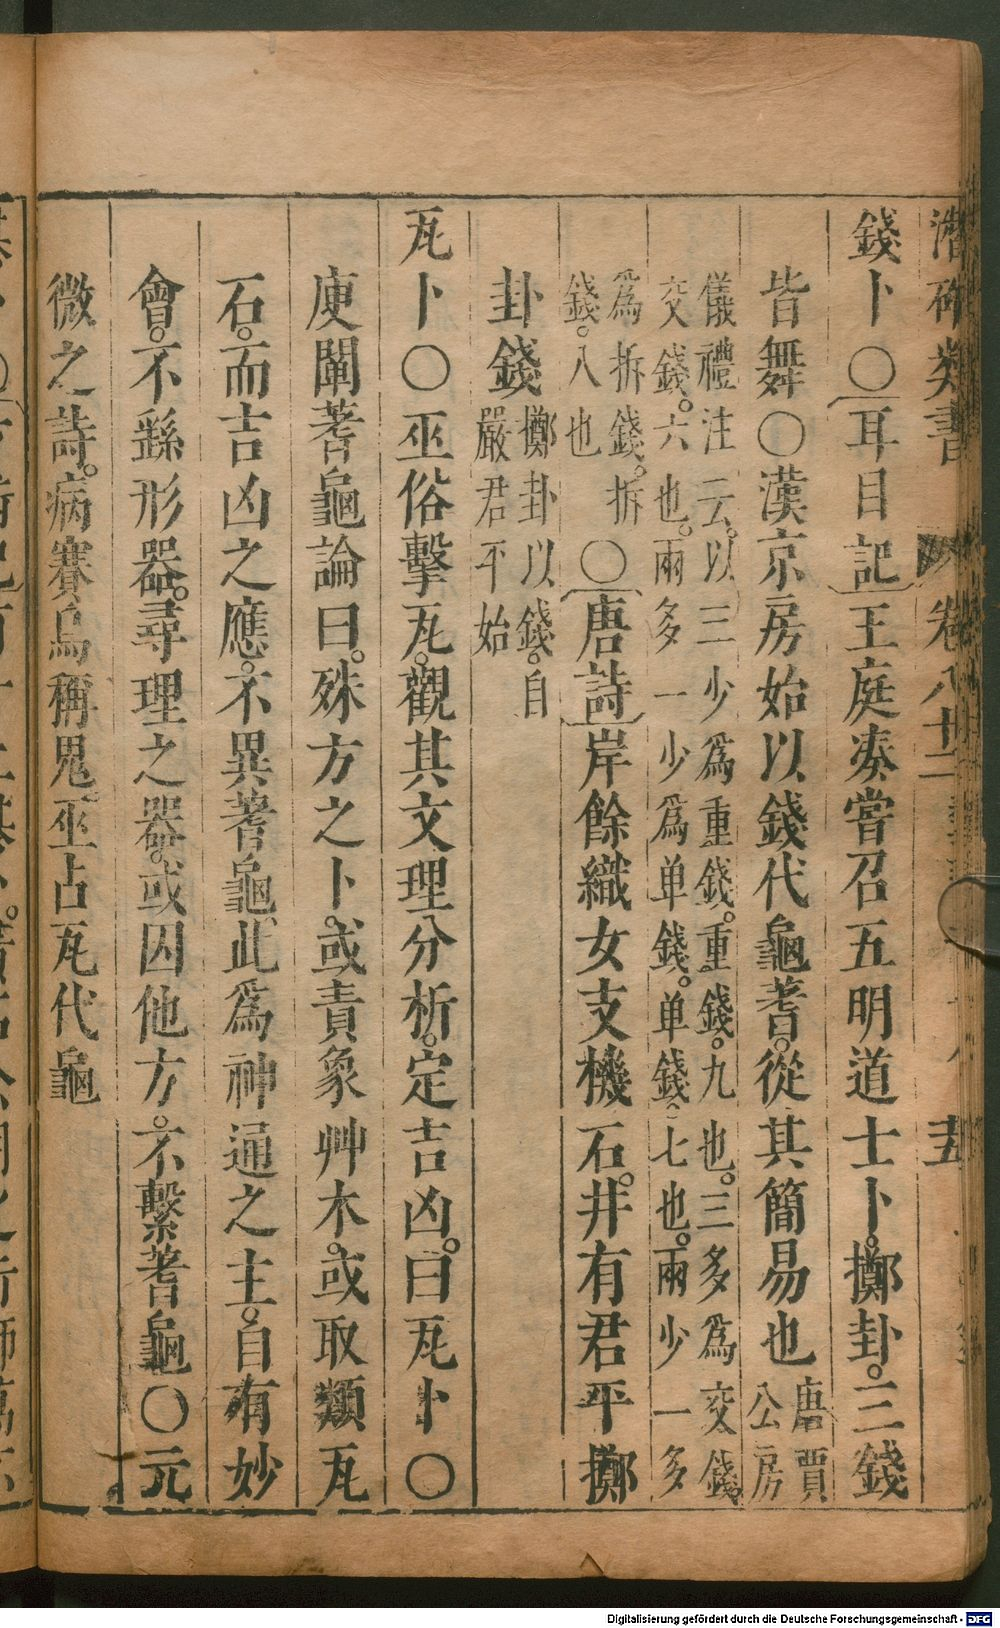 潛確類書 卷八十二
錢卜○耳目記王庭湊嘗召五明道士卜擲卦三錢
皆舞○漢京房始以錢代龜蓍從其簡易也唐賈公房
儀禮注云以三少為重錢重錢九也三多為交錢
交錢六也兩多一少為单錢单錢七也兩少一多
為拆錢拆錢八也○唐詩岸餘織女支機石井有君平擲
卦錢擲卦以錢自嚴君平始
瓦卜○巫俗擊瓦觀其文理分析定吉凶曰瓦卜○
庾闡蓍龜論曰殊方之卜或責象艸木或取類瓦
石而吉凶之應不異蓍龜此為神通之主自有妙
會不繇形器尋理之器或因他方不繫蓍龜○元
微之詩病賽烏稱鬼巫占瓦代龜
Digitalisierung gefördert durch die Deutsche Forschungsgemeinschaft - DFG